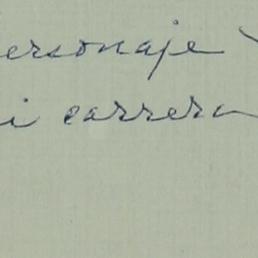 ersonaje
i carrera